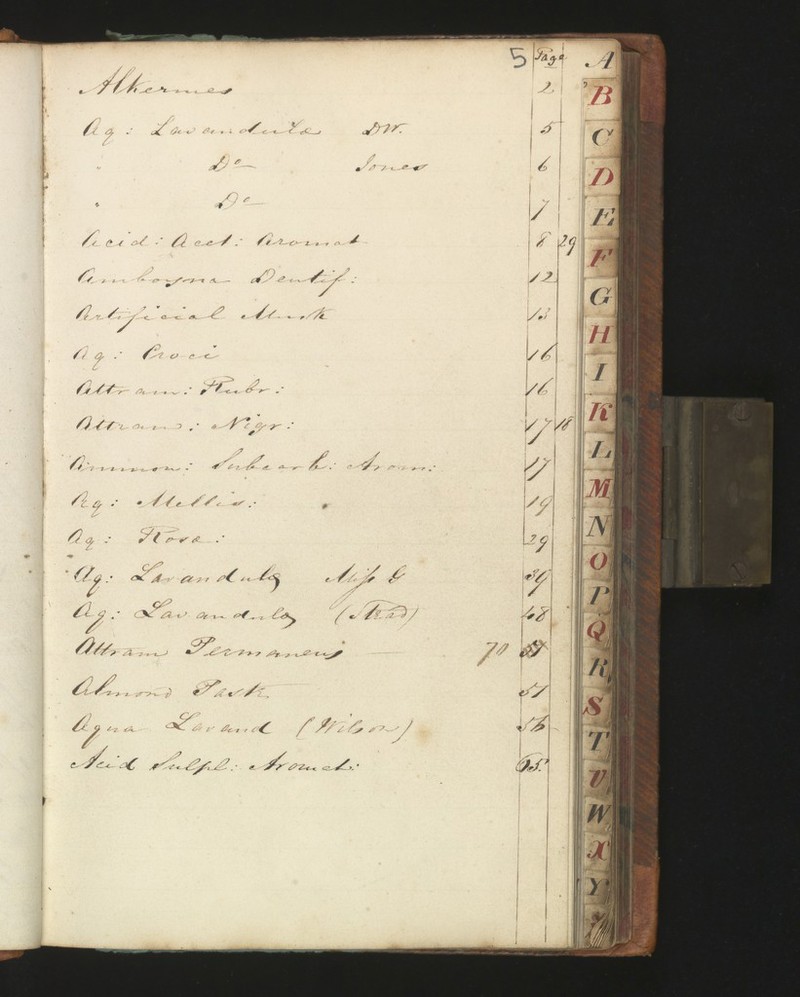 5 Page
Alkermes 2
Aq: Lavandulæ DW. 5
" Do Jones 6
" Do 7
Acid: Acet: Aromat 8 29
Amboyna Dentif: 12
Artificial Musk 13
Aq: Croci 16
Attram: Rubr: 16
Attram: Nigr: 17 18
Ammon: Subcarb: Arom: 17
Aq: Mellis: 19
Aq: Rosæ: 29
Aq: Lavandulæ Miss G 39
Aq: Lavandulæ (Strad) 48
Attram Permanens — 70
Almond Paste 51
Aqua Lavand (Wilson) 56
Acid Sulph: Aromat: 65
A
B
C
D
E
F
G
H
I
K
L
M
N
O
P
Q
R
S
T
U
W
X
Y